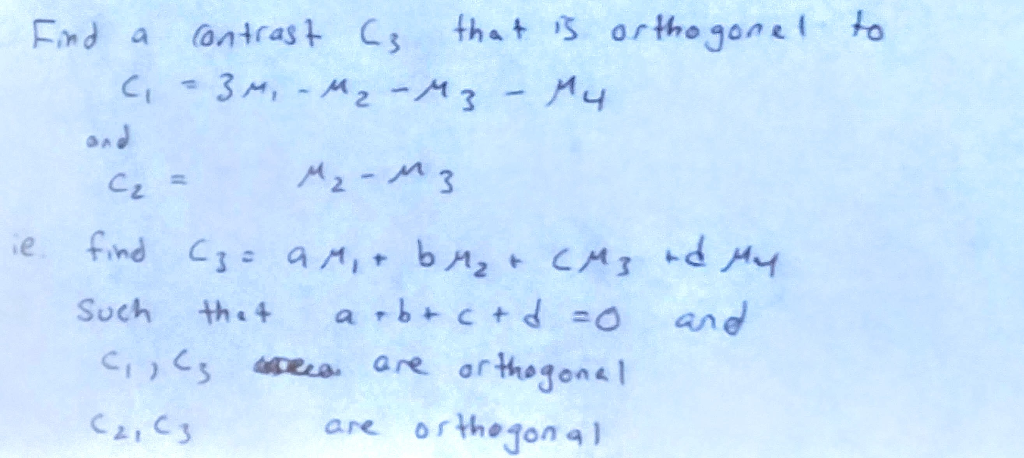 Find a contrast C₃ that is orthogonal to
C₁ = 3μ₁ - μ₂ - μ₃ - μ₄
and
C₂ = μ₂ - μ₃
ie. find C₃ = aμ₁ + bμ₂ + cμ₃ + dμ₄
Such that a + b + c + d = 0 and
C₁, C₃ are orthogonal
C₂, C₃ are orthogonal